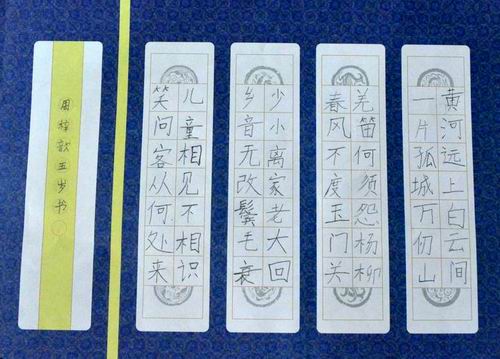 黄河远上白云间
一片孤城万仞山
羌笛何须怨杨柳
春风不度玉门关
少小离家老大回
乡音无改鬓毛衰
儿童相见不相识
笑问客从何处来
周梓歆五岁书